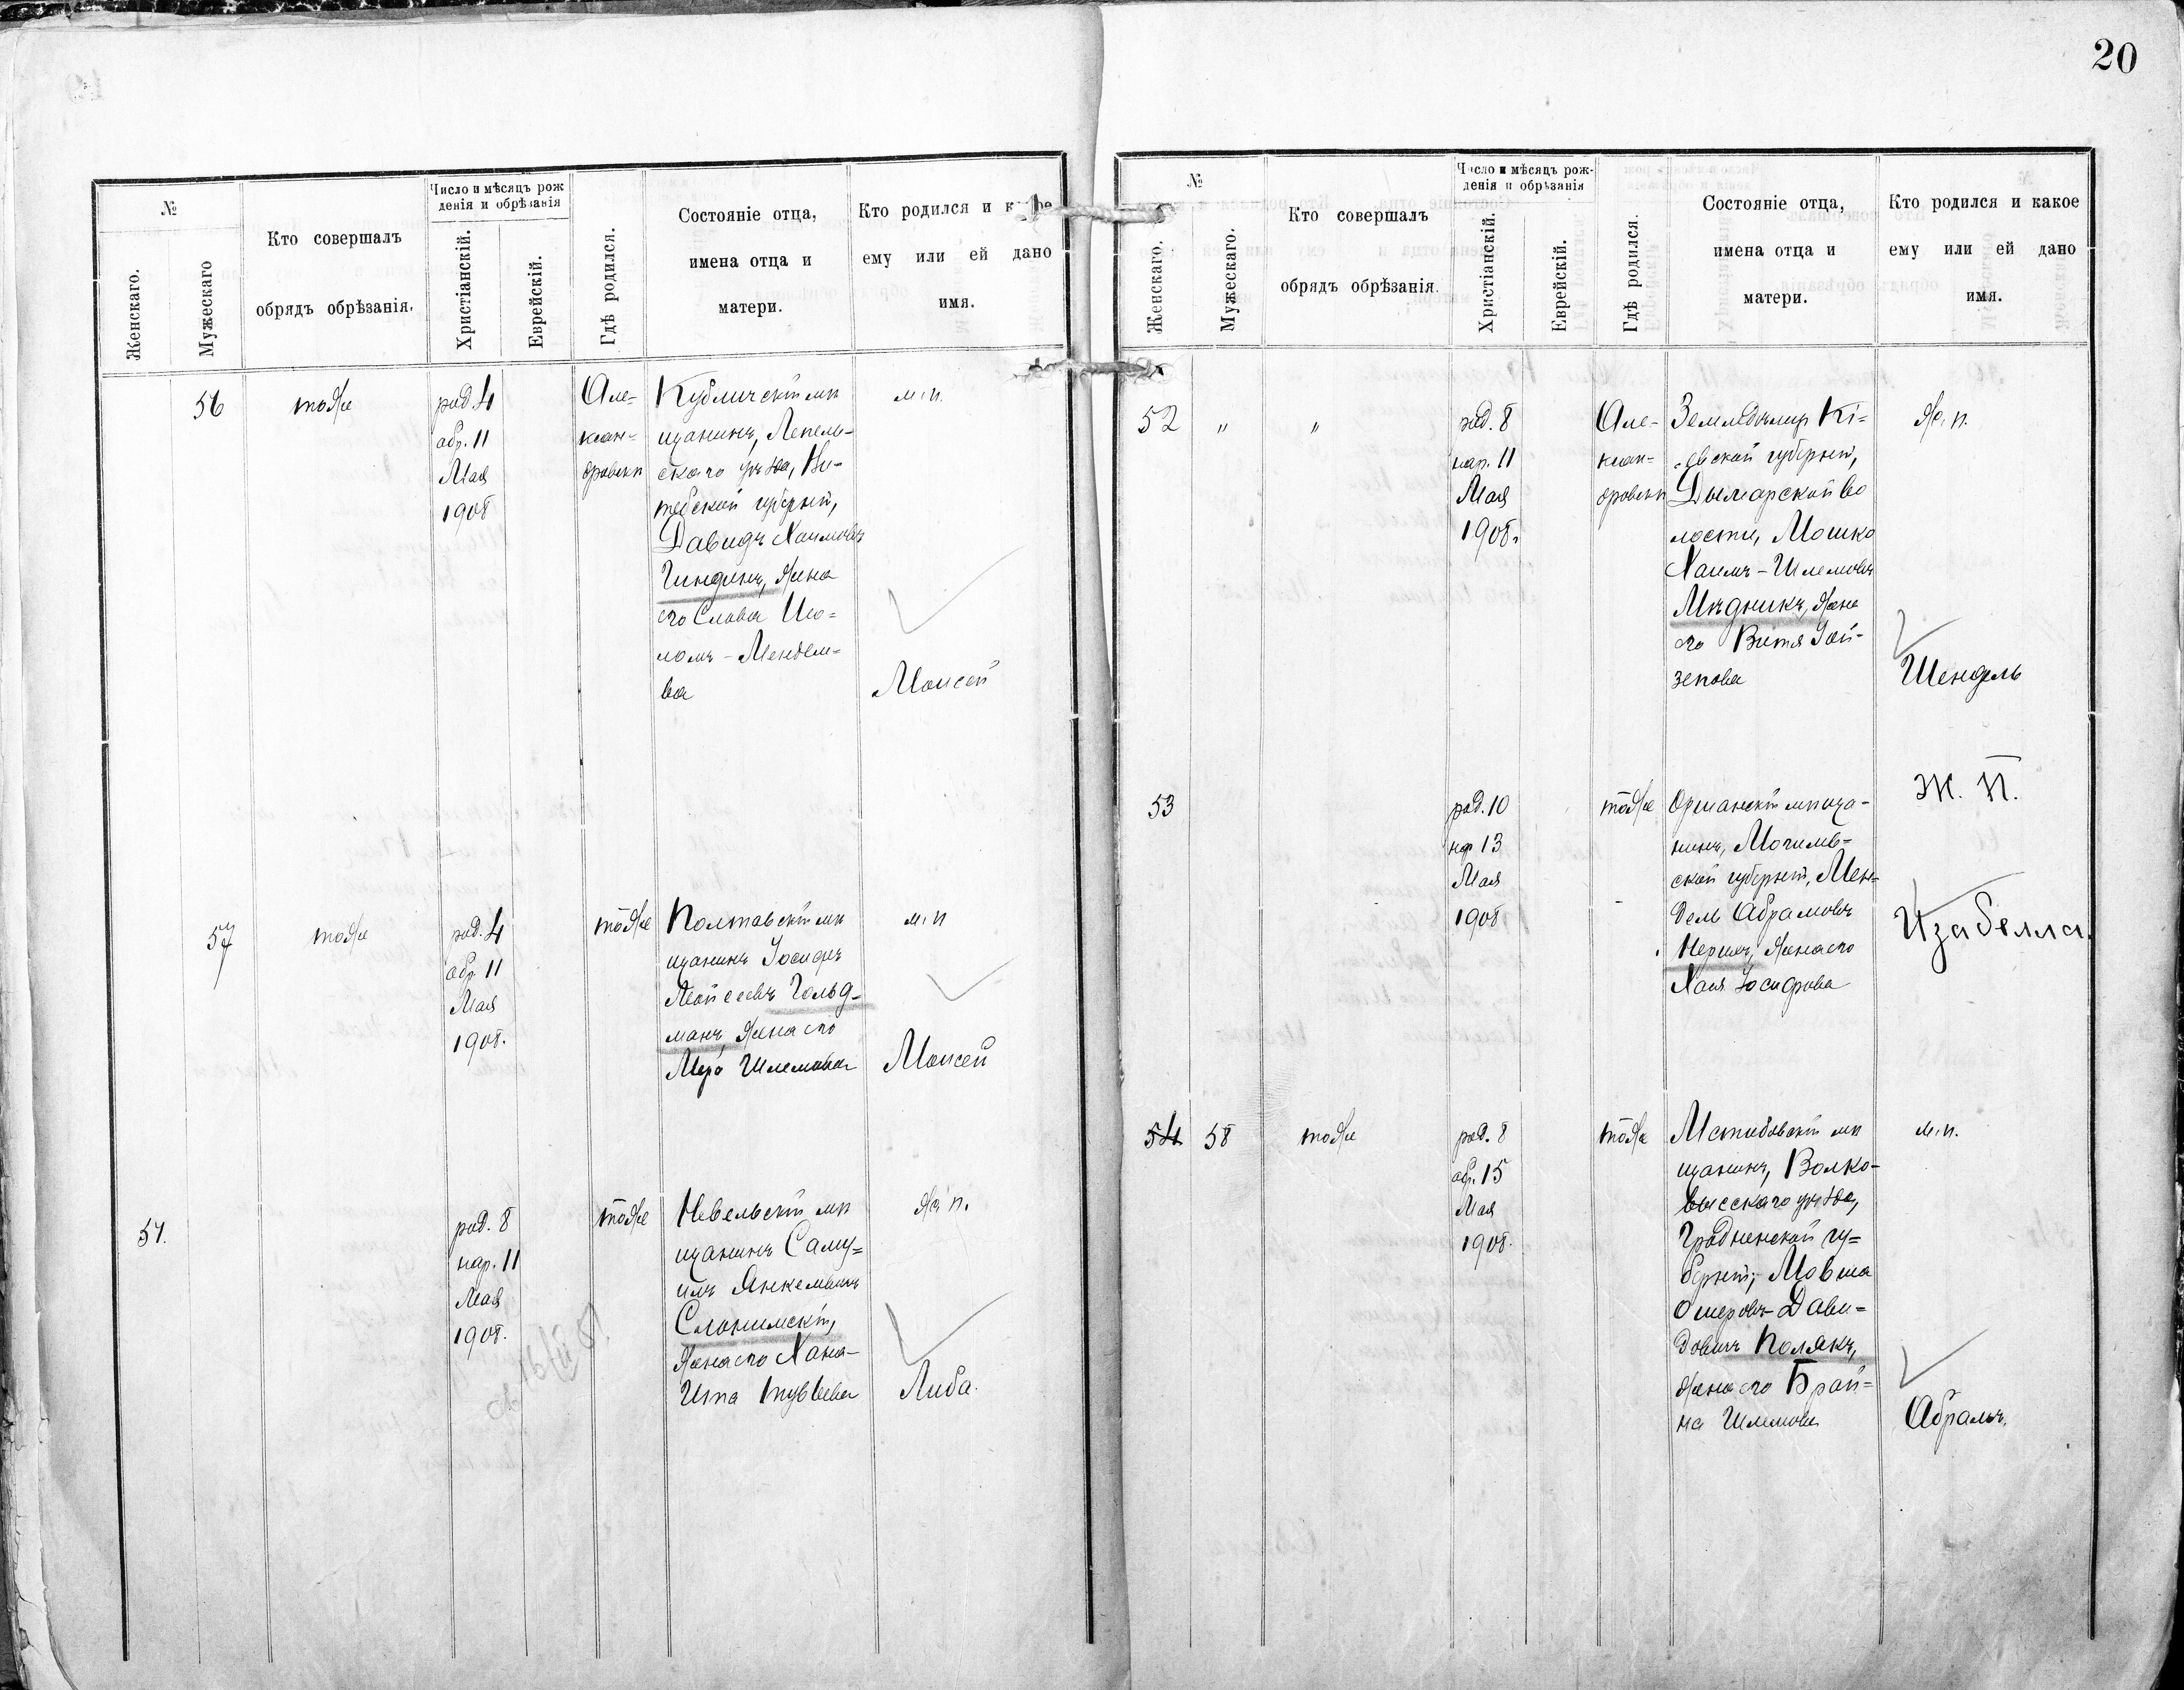 20
№
Женскаго.
Мужескаго
Кто совершалъ
обрядъ обрѣзанія.
Число и мѣсяцъ рож
денія и обрѣзанія
Христіанскій.
Еврейскій.
Гдѣ родился.
Состояніе отца,
имена отца и
матери.
Кто родился и
ему или ей дано
имя.
56
тоже
род. 4
обр. 11
Мая
1908
Але-
ксан-
дровскъ
Кубличскій мѣ
щанинъ, Лепель-
скаго уѣзда, Ви-
тебской губерніи,
Давидъ Хаимовъ
Гиндинъ, жена
его Слава
Мендел-
ва
м. п.
Моисей
57
тоже
род. 4
обр. 11
Мая
1908.
тоже
Полтавскій мѣ
щанинъ Іосифъ
Мойсеевъ Гольд-
манъ, жена его
Мера Шлемова
м. п
Моисей
51.
род. 8
нар. 11
Мая
1908.
тоже
Невельскій мѣ
щанинъ Саму=
илъ Янкелевичъ
Слонимскій,
жена его Хана-
Ита
ж. п.
Либа.
№
Женскаго.
Мужескаго.
Кто совершалъ
обрядъ обрѣзанія.
Число и мѣсяцъ рож-
денія и обрѣзанія
Христіанскій.
Еврейскій.
Гдѣ родился.
Состояніе отца,
имена отца и
матери.
Кто родился и какое
ему или ей дано
имя.
52
"
"
род. 8
нар. 11
Мая
1908.
Але-
ксан=
дровскъ
Земледѣлецъ Кі=
евской губерніи,
Дымарской во
лости, Мошко
Хаимъ-Шлемовъ
Мѣдникъ, жена
его Витя Зай-
зепова
ж. п.
Шендель
53
род. 10
нар 13
Мая
1908
тоже
Оршанскій мѣща-
нинъ, Могилев=
ской губерніи, Мен-
дель Абрамовъ
жена его
Хая Іосифова
Ж. П.
Изабелла.
54
58
тоже
род. 8
обр. 15
Мая
1908.
тоже
Мстибовскій мѣ
щанинъ, Волко-
высскаго уѣзда,
Гродненской гу=
берніи, Мовша
Ошеровъ-Дави=
довичъ Полякъ,
жена его Брай=
на Шлемова
м. п.
Абрамъ.